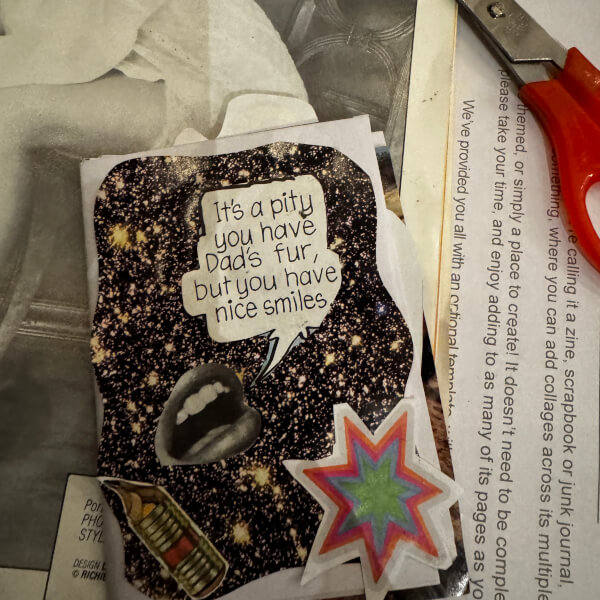 It's a pity
you have
Dad's fur,
but you have
nice smiles
calling it a zine, scrapbook or junk journal,
something, where you can add collages across its multiple
themed, or simply a place to create! It doesn't need to be
please take your time, and enjoy adding to as many of its pages as
We've provided you all with an optional
PHO
STYL
DESIGN
© RICHIE